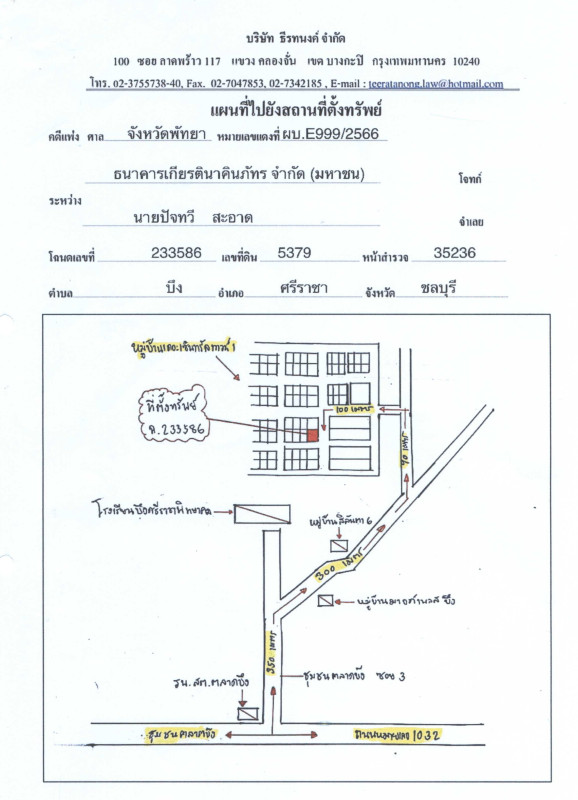 บริษัท ธีรทนงค์ จำกัด
100 ซอย ลาดพร้าว 117 แขวง คลองจั่น เขต บางกะปิ กรุงเทพมหานคร 10240
โทร. 02-3755738-40, Fax. 02-7047853, 02-7342185 , E-mail : teeratanong.law@hotmail.com
แผนที่ไปยังสถานที่ตั้งทรัพย์
คดีแพ่ง ศาล จังหวัดพัทยา หมายเลขแดงที่ ผบ.E999/2566
ธนาคารเกียรตินาคินภัทร จำกัด (มหาชน) โจทก์
ระหว่าง
นายปัจทวี สะอาด จำเลย
โฉนดเลขที่ 233586 เลขที่ดิน 5379 หน้าสำรวจ 35236
ตำบล บึง อำเภอ ศรีราชา จังหวัด ชลบุรี
หมู่บ้านเดอะเซ็นทรัลทาวน์ 1
ที่ตั้งทรัพย์
ฉ.233586
100 เมตร
70 เมตร
โรงเรียนบึงศรีราชาพิทยาคม
หมู่บ้านสิลันทา 6
300 เมตร
บึง
350 เมตร
ชุมชนตลาดบึง ซอย 3
รพ.สต.ตลาดบึง
ชุมชนตลาดบึง
1032